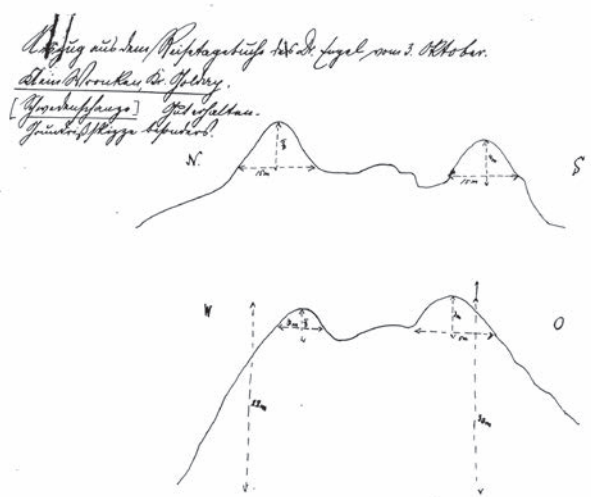 Auszug aus dem Reisetagebuche des Dr. Engel vom 3. Oktober.
Klein Wronken, Kr. Goldap.
[Schwedenschanze] Gut erhalten.
Grundrißskizze besonders.
N.
S
15m
15m
W
O
5m
22m
30m